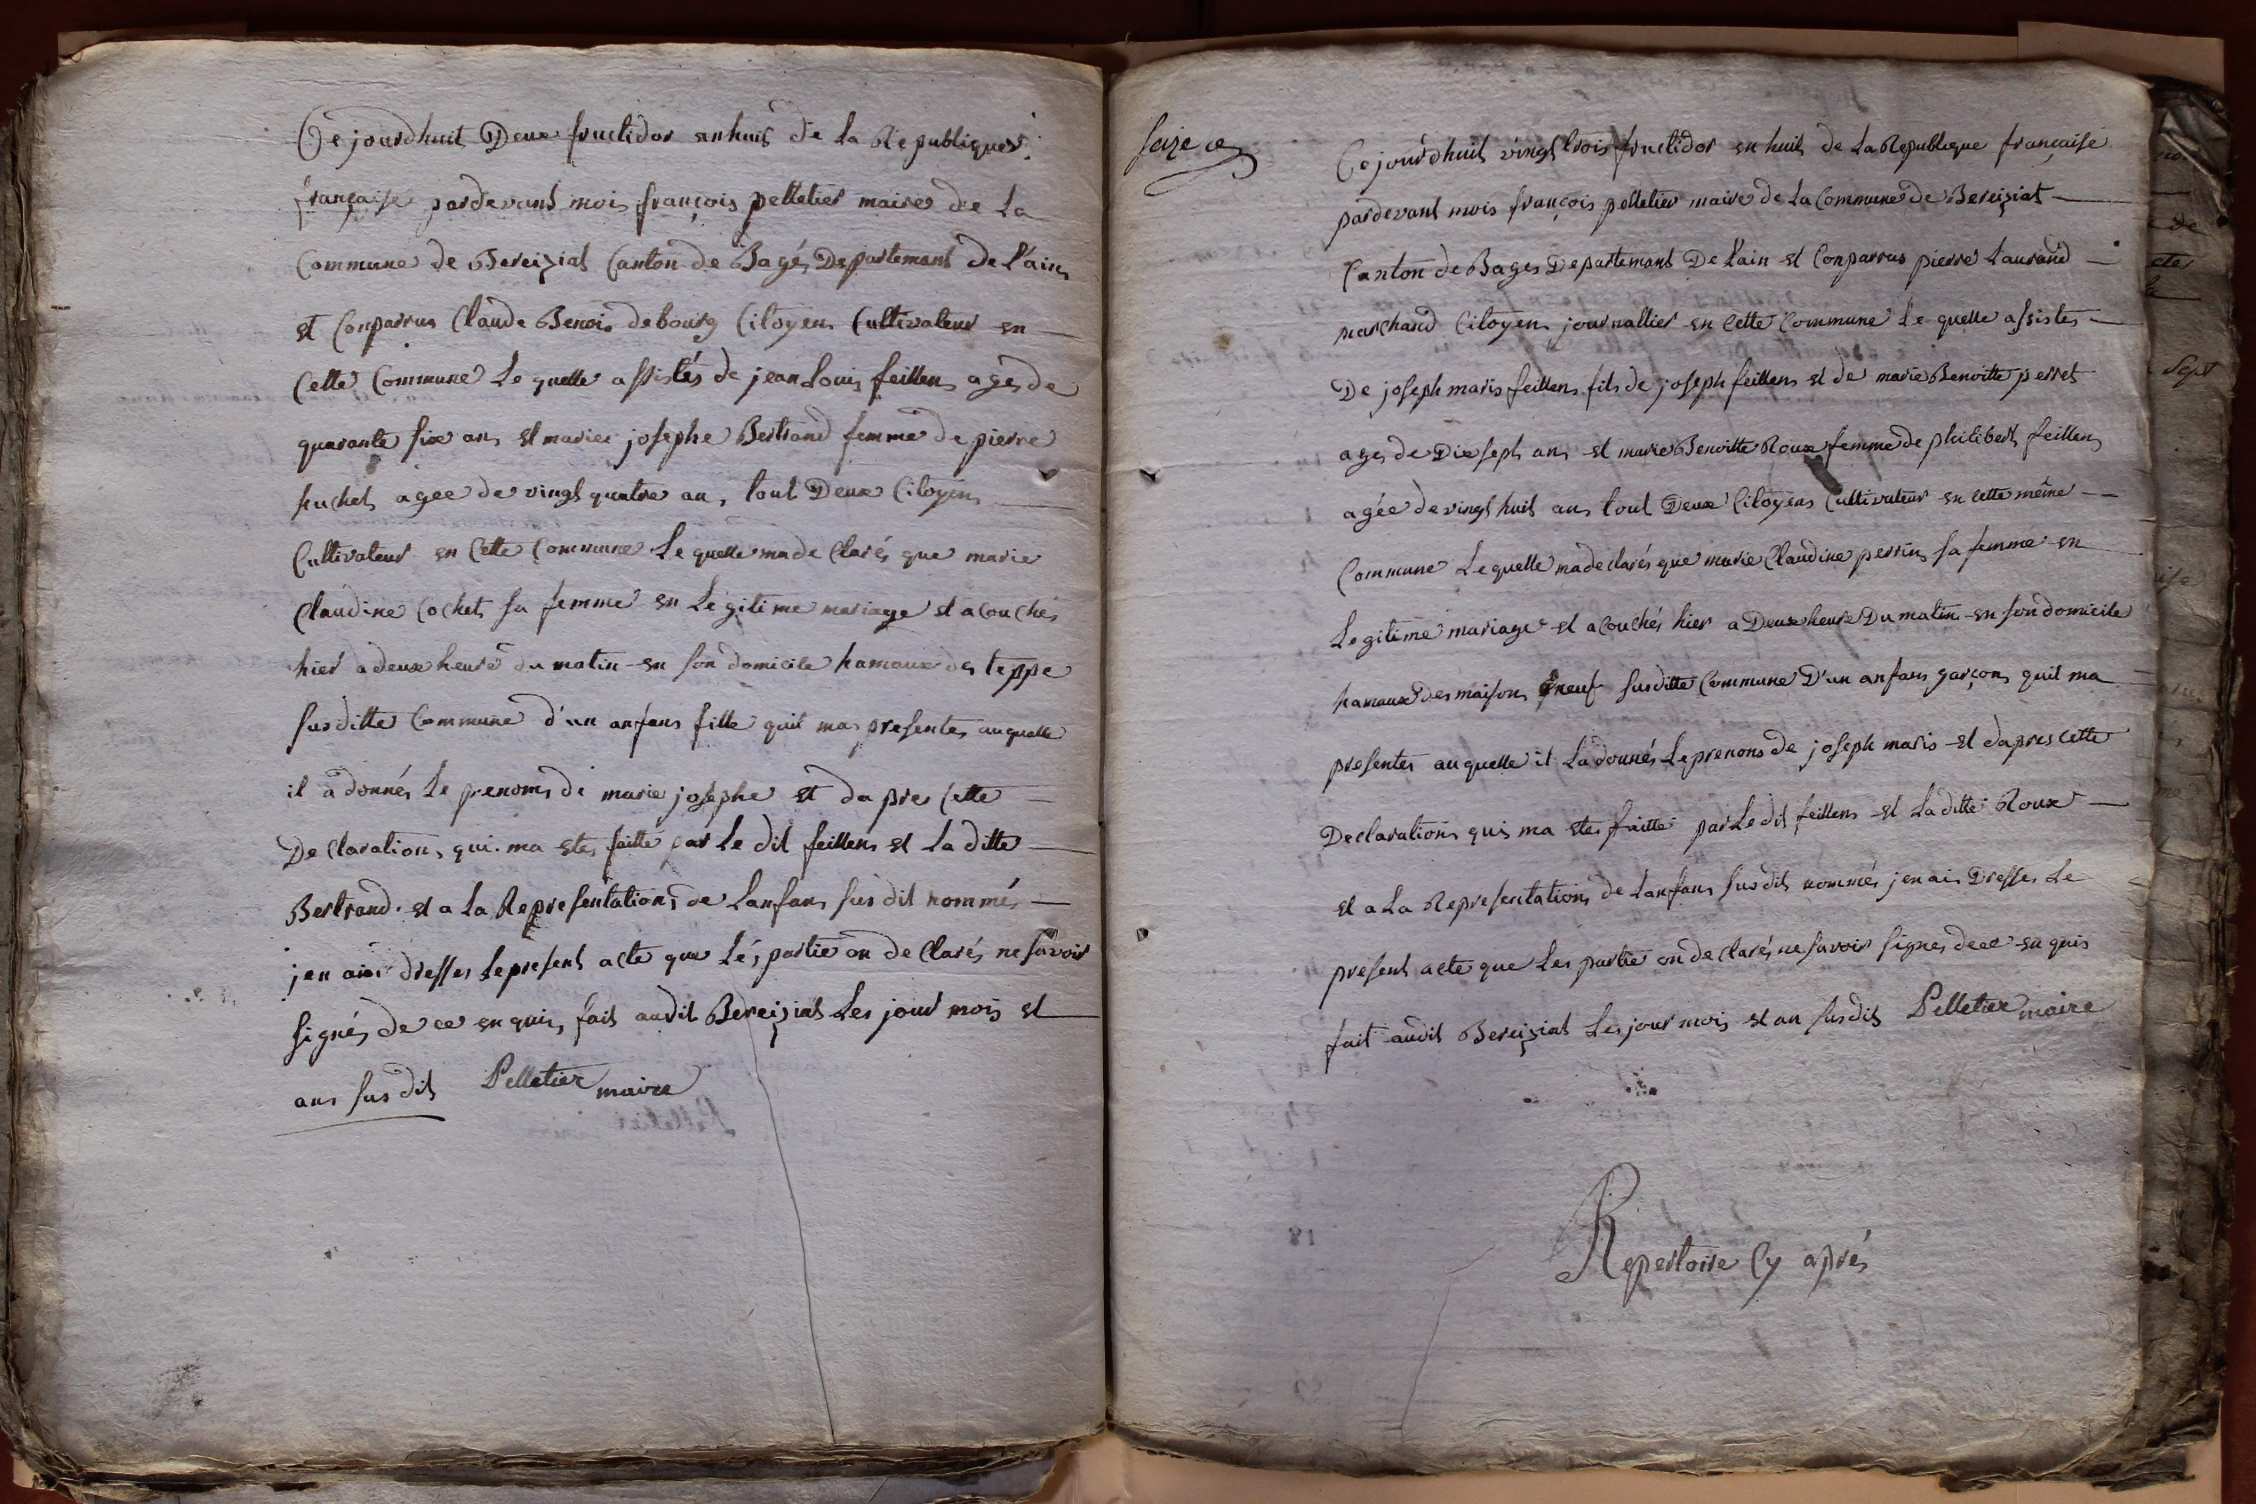 Ce jourdhuit Deux fructidor en huit de la Republique
française pardevant moi françois pelletier maire de la
Commune de Bereiziat Canton de Bagé Departemant de l'ain
et Conparrus Claude Benoi debourg Citoyen Cultivateur en
Cette Commune Le quelle assistés de jean Louis feillens agés de
quarante six ans et marie josephe Bertrand femme de pierre
huchet agee de vingt quatre an, tout Deux Citoyens
Cultivateur en Cette Commune Le quelle ma de Clarés que marie
Claudine Cochet sa femme en Legitime mariage et acouchés
hier a deux heure du matin en son domicile hamaux des teppe
sus ditte Commune d'un anfans fille quil mas presentes auquelle
il a donnés Le prenoms de marie josephe et da pre Cette
De Claration, qui ma etes faitte par Le dit feillens et La ditte
Bertrand et a La Representation, de Lanfans sus dit nommés
jen aiis dresses Le present acte que Lés partie on de Clarés ne savoir
signés de ce en quis, fait audit Bereiziat Les jour mois et
ans sus dit Pelletier maire
seize
Ce jourdhuit vingt trois fructidor en huit de La Republique française
pardevant mois françois pelletier maire de La Commune de Bereiziat
Canton de Bages Departemant De Lain et Conparrus pierre Laurand
marchand Citoyen journallier en Cette Commune Le quelle assistes
De joseph maris feillens fils de joseph feillens et de marie Benoitte perret
ages de Dix sept ans et marie Benoitte Roux femme de philibert feillens
agée de vingt huit ans tout Deux Citoyens Cultivateur en Cette même
Commune Le quelle ma declarés que marie Claudine perrin sa femme en
Legitime mariage et acouchés hier a Deux heure Du matin en son domicile
hamaux des maison neuf susditte Commune D'un anfans garçon, quil ma
presentes au quelle il La donnés Le prenons de joseph maris et dapres cette
Declaration quis ma etes faitte par Le dit feillens et La ditte Roux
et a La Representation de Lanfans susdit nommés jen ais Dresses Le
present acte que Les partie on declarés ne savoir signes dece en quis
fait audit Bereiziat Les jour mois et an susdits Pelletier maire
Repertoire Cy aprés